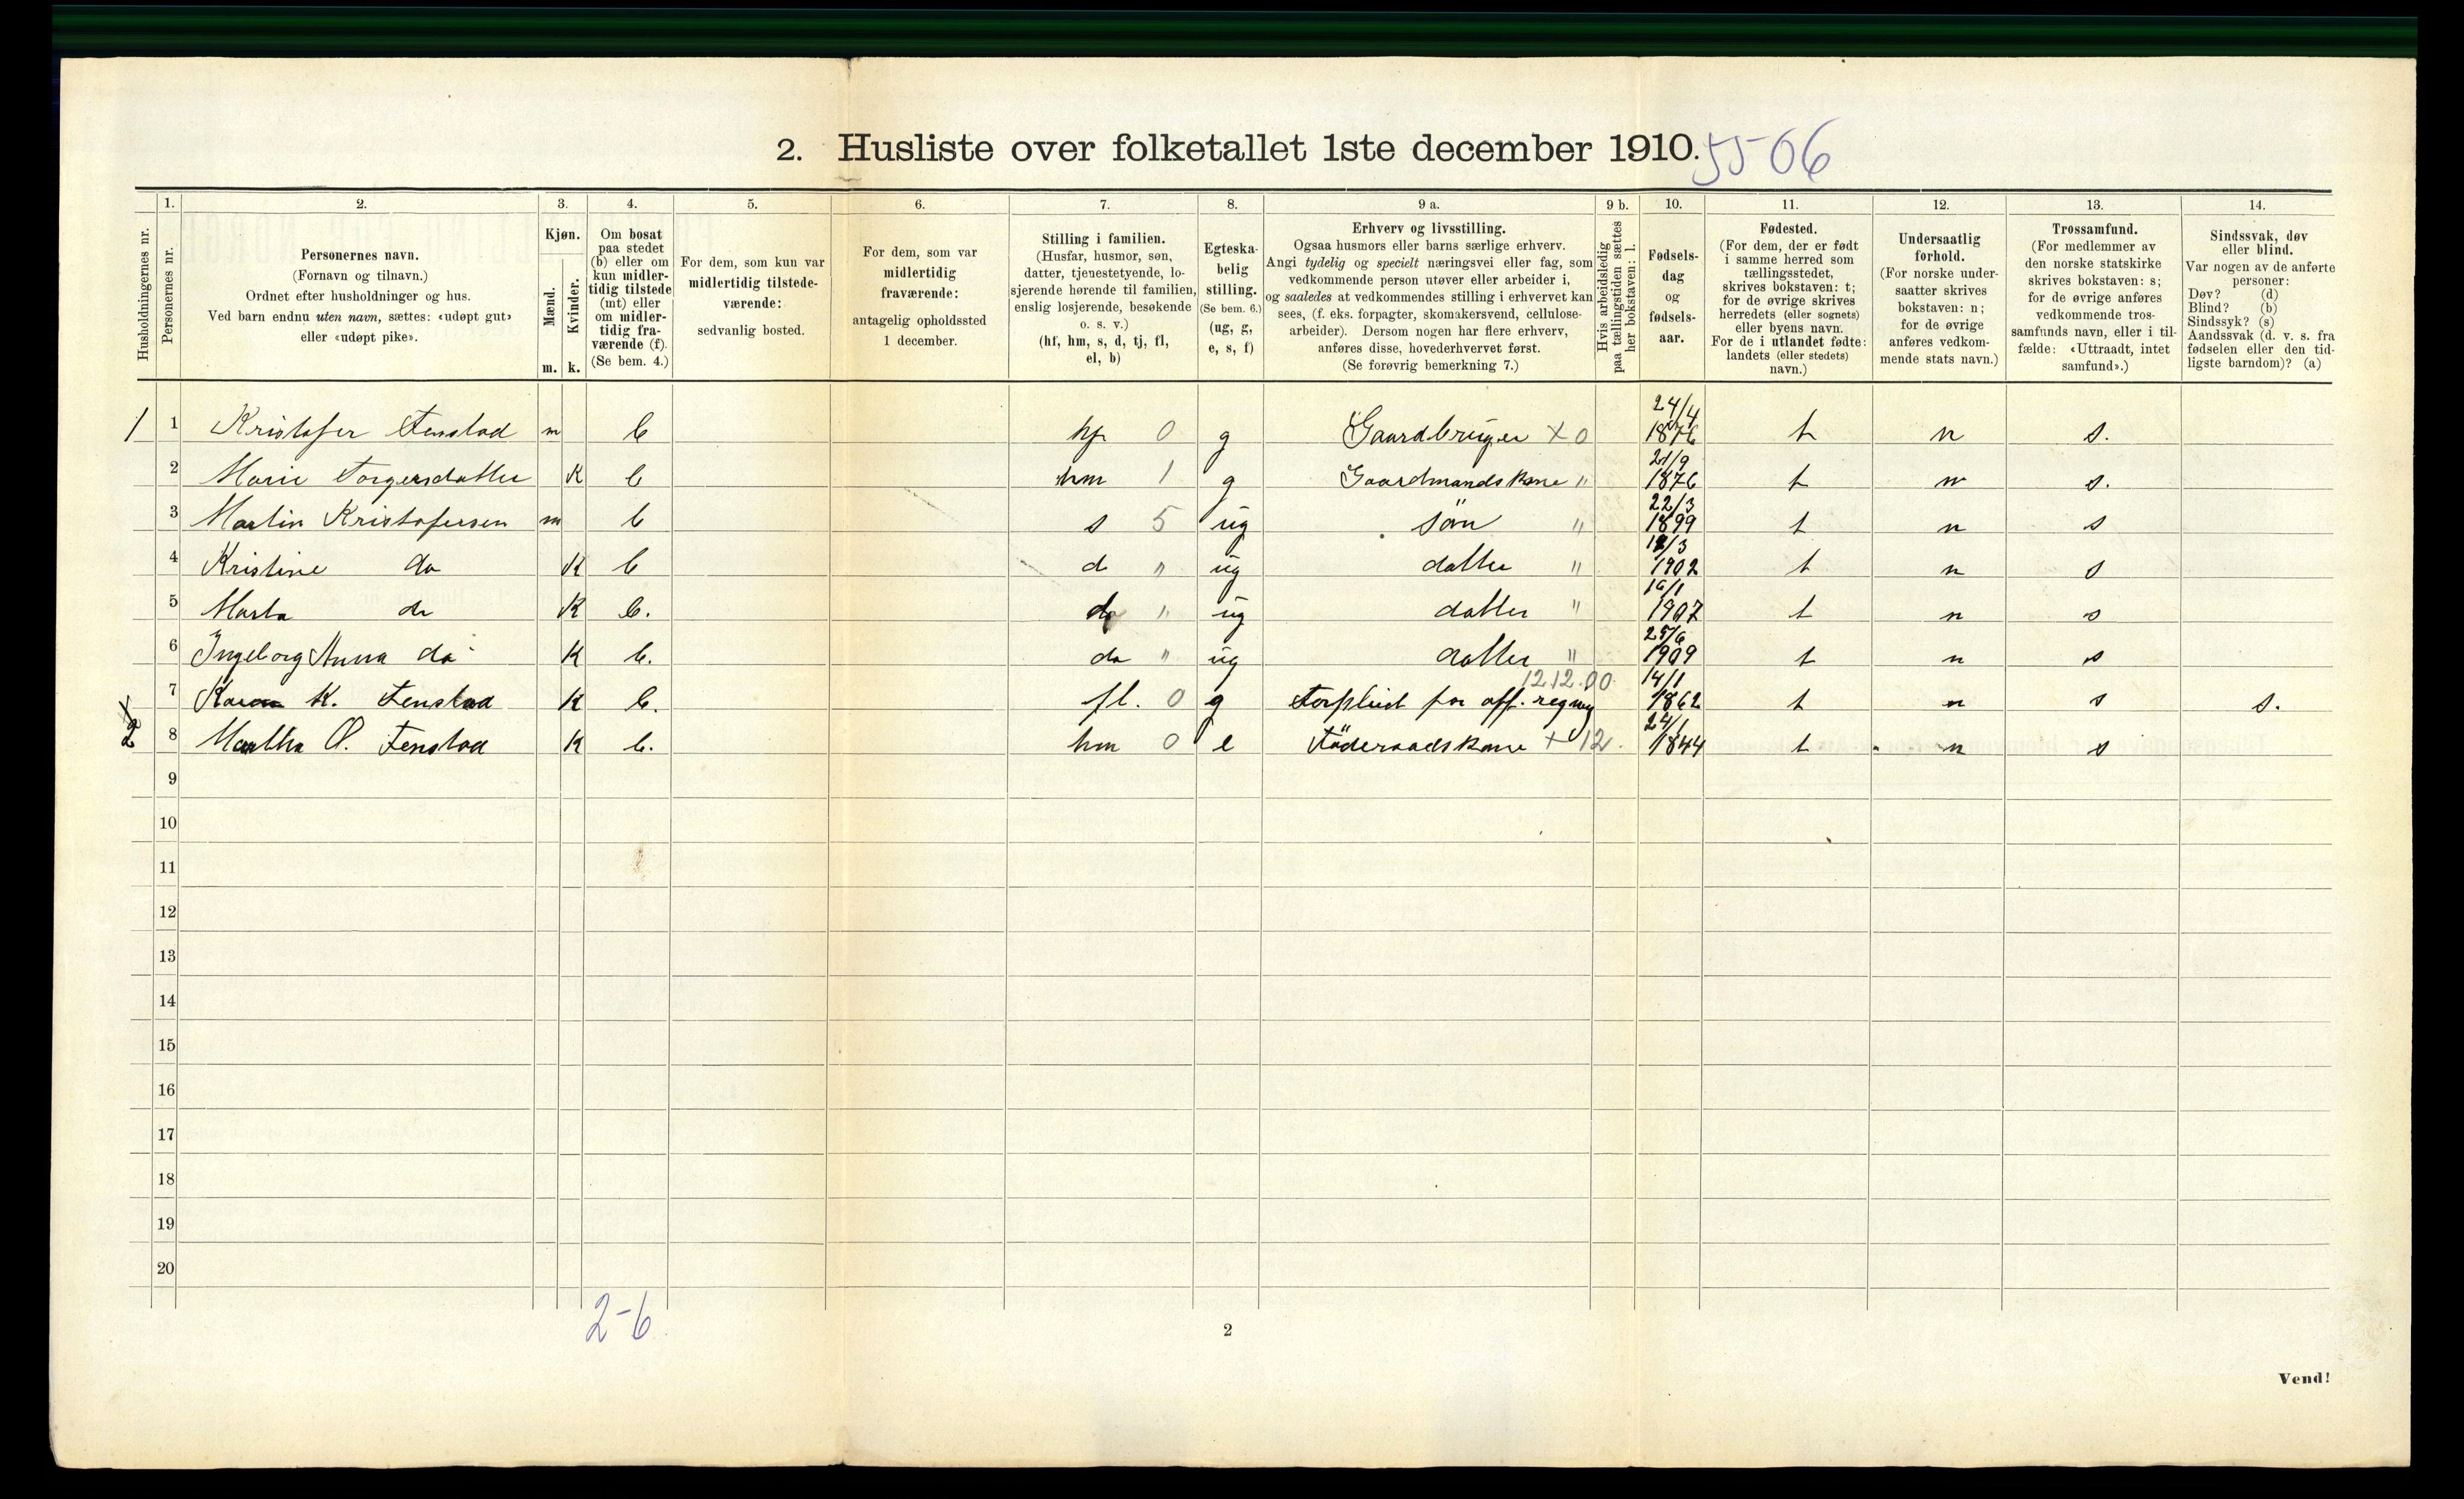 2. Husliste over folketallet 1ste december 1910. 5506
Husholdningernes nr.
1.
Personernes nr.
2.
Personernes navn.
(Fornavn og tilnavn.)
Ordnet efter husholdninger og hus.
Ved barn endnu uten navn, sættes: «udøpt gut»
eller «udøpt pike».
3.
Kjøn.
Mænd.
Kvinder.
m. k.
4.
Om bosat
paa stedet
(b) eller om
kun midler-
tidig tilstede
(mt) eller
om midler-
tidig fra-
værende (f).
(Se bem. 4.)
5.
For dem, som kun var
midlertidig tilstede-
værende:
sedvanlig bosted.
6.
For dem, som var
midlertidig
fraværende:
antagelig opholdssted
1 december.
7.
Stilling i familien.
(Husfar, husmor, søn,
datter, tjenestetyende, lo-
sjerende hørende til familien,
enslig losjerende, besøkende
o. s. v.)
(hf, hm, s, d, tj, fl,
el, b)
8.
Egteska-
belig
stilling.
(Se bem. 6.)
(ug, g,
e, s, f)
9 a.
Erhverv og livsstilling.
Ogsaa husmors eller barns særlige erhverv.
Angi tydelig og specielt næringsvei eller fag, som
vedkommende person utøver eller arbeider i,
og saaledes at vedkommendes stilling i erhvervet kan
sees, (f. eks. forpagter, skomakersvend, cellulose-
arbeider). Dersom nogen har flere erhverv,
anføres disse, hovederhvervet først.
(Se forøvrig bemerkning 7.)
9 b.
Hvis arbeidsledig
paa tællingstiden sættes
her bokstaven: l.
10.
Fødsels-
dag
og
fødsels-
aar.
11.
Fødested.
(For dem, der er født
i samme herred som
tællingsstedet,
skrives bokstaven: t;
for de øvrige skrives
herredets (eller sognets)
eller byens navn.
For de i utlandet fødte:
landets (eller stedets)
navn.)
12.
Undersaatlig
forhold.
(For norske under-
saatter skrives
bokstaven: n;
for de øvrige
anføres vedkom-
mende stats navn.)
13.
Trossamfund.
(For medlemmer av
den norske statskirke
skrives bokstaven: s;
for de øvrige anføres
vedkommende tros-
samfunds navn, eller i til-
fælde: «Uttraadt, intet
samfund».)
14.
Sindssvak, døv
eller blind.
Var nogen av de anførte
personer:
Døv? (d)
Blind? (b)
Sindssyk? (s)
Aandssvak (d. v. s. fra
fødselen eller den tid-
ligste barndom)? (a)
1 1 Kristofer Fenstad m b hf 0 g Gaardbruger x 0 24/4 1876 t n s.
2 Marie Torgersdatter K b hm 1 g Gaardmandskone " 21/9 1876 t n s.
3 Martin Kristofersen m b s 5 ug søn " 22/3 1899 t n s
4 Kristine do K b d " ug datter " 3 1902 t n s
5 Marta do K b. do " ug datter " 16/1 1907 t n s
6 Ingeborg Anna do K b. do " ug datter " 25/6 1909 t n s
7 K. Fenstad K b. fl. 0 g forpleiet for off. regning 12.12.00 14/1 1862 t n s s.
2 8 Martha O. Fenstad K b. hm 0 e Föderaadskone + 12. 24/1 1844 t n s
9
10
11
12
13
14
15
16
17
18
19
20
2-6
2
Vend!